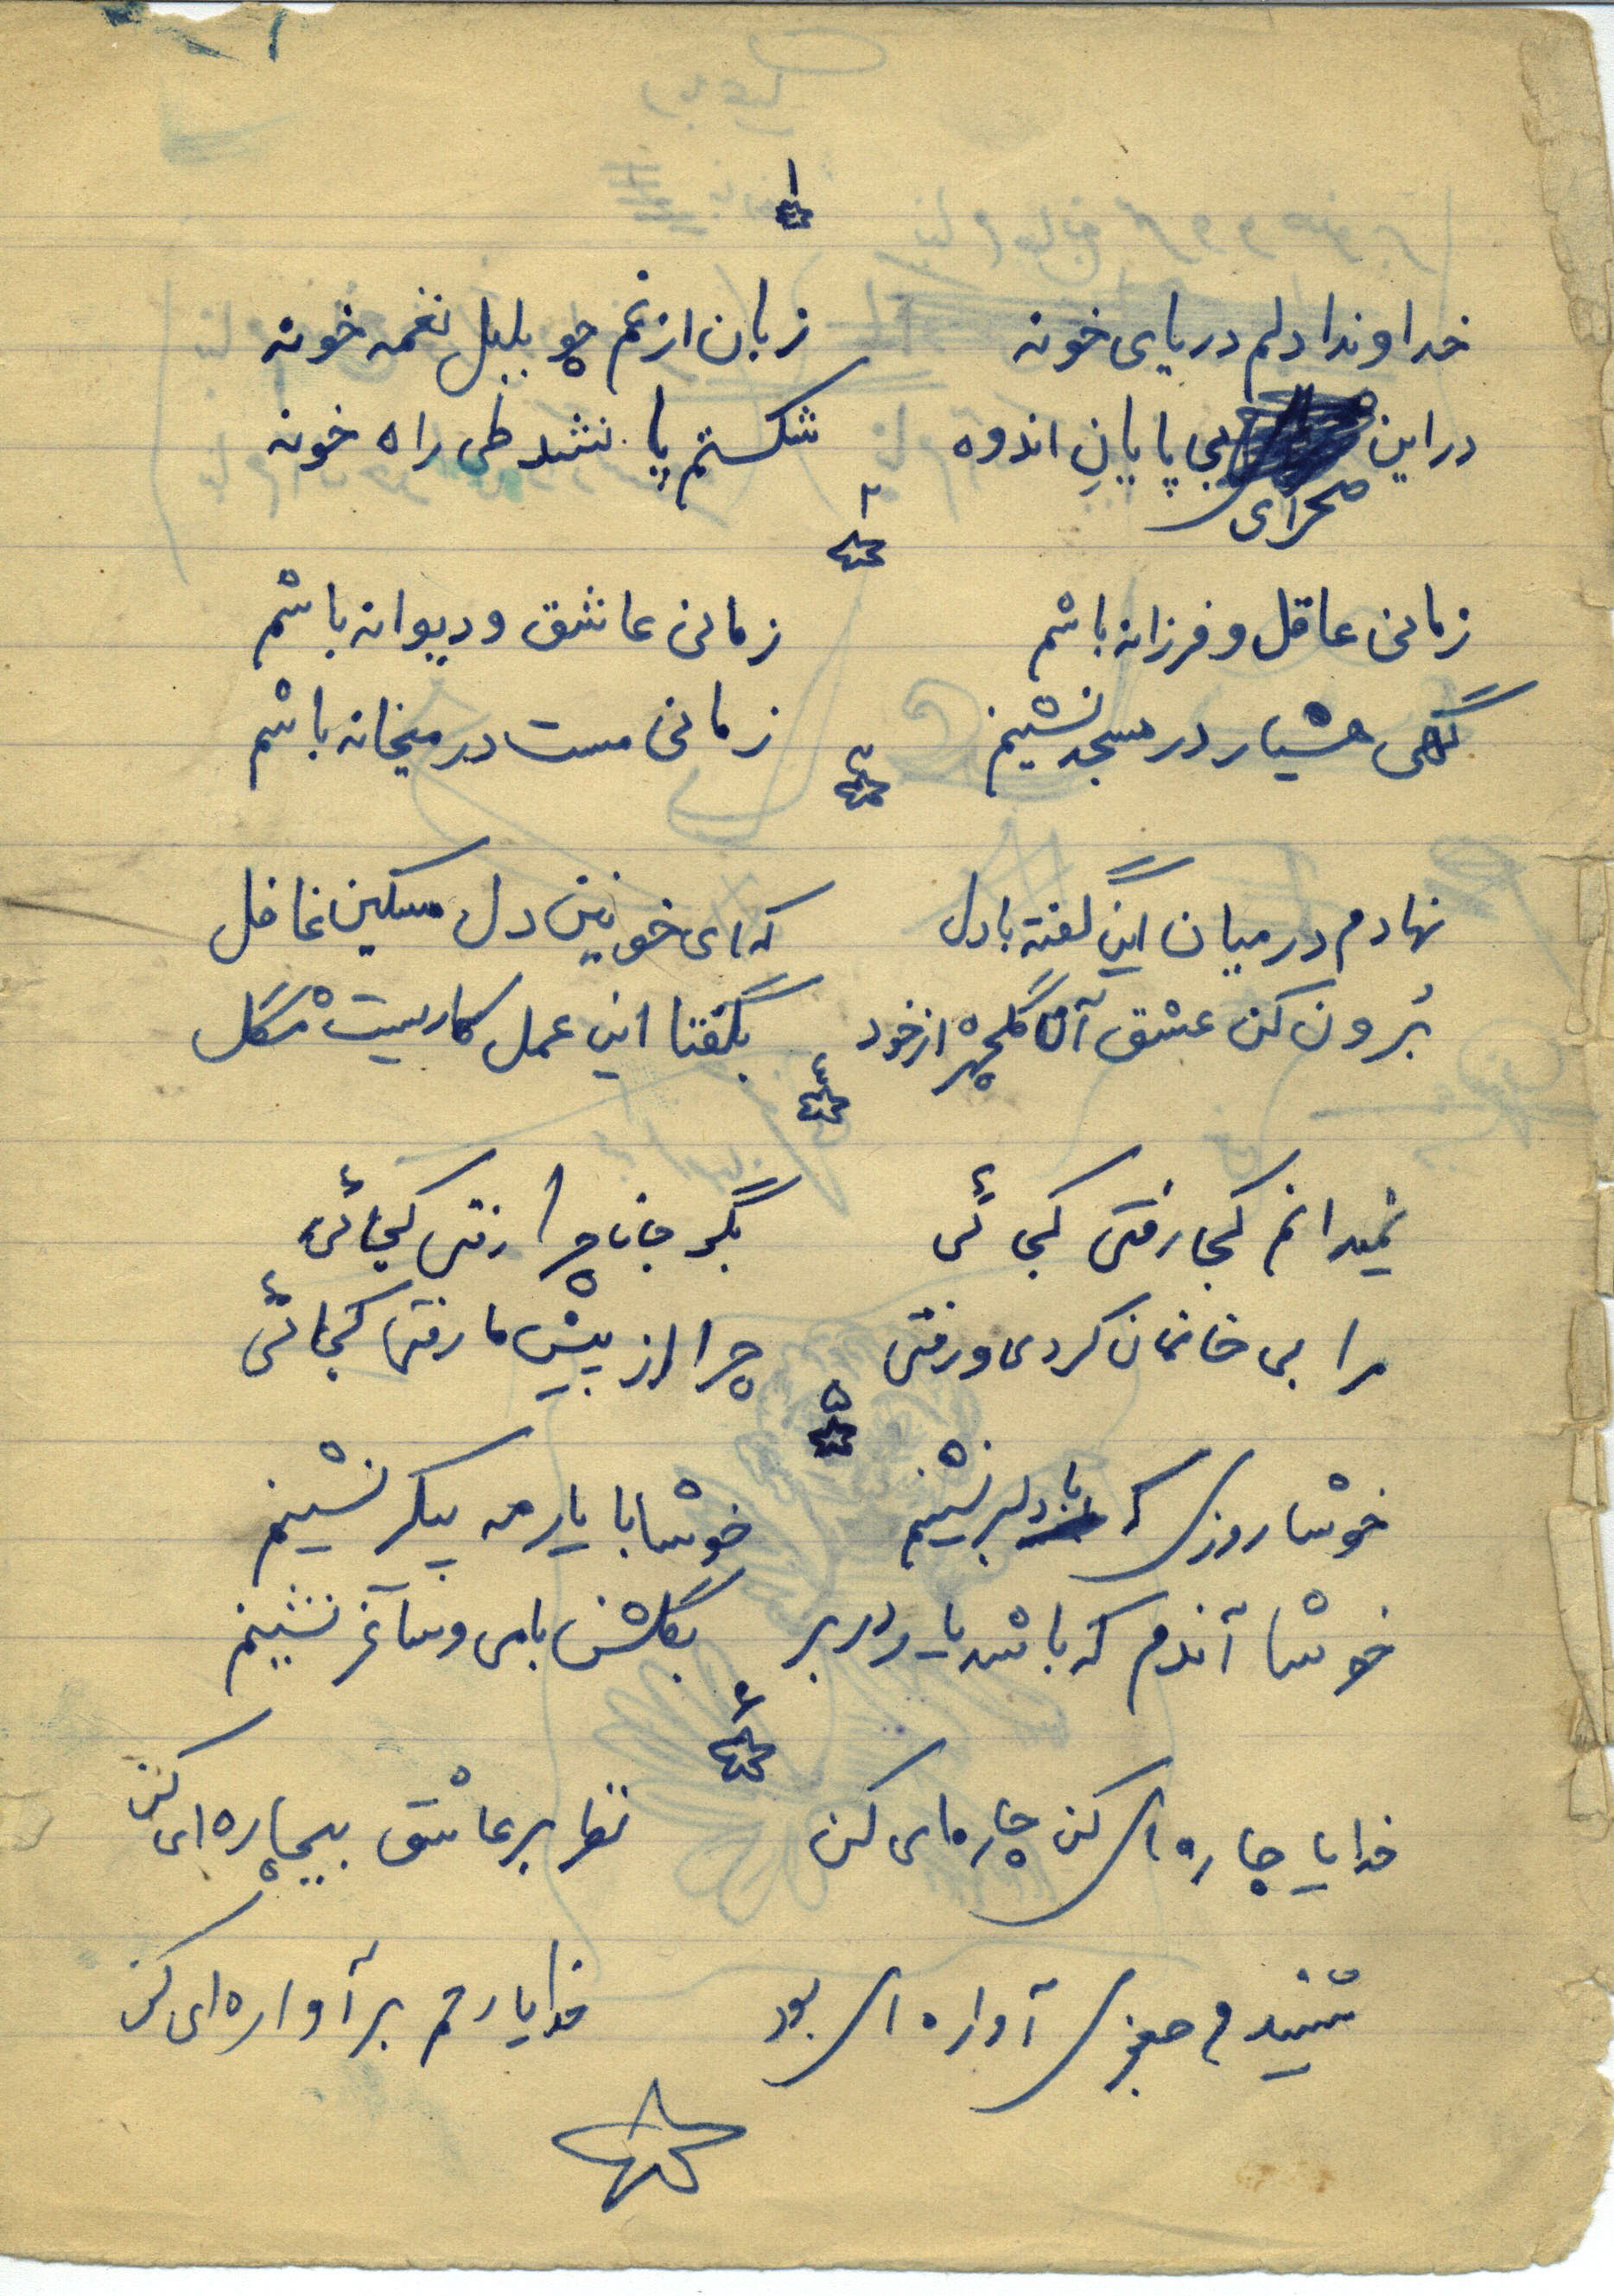 ۱
خداوندا دلم دریای خونه    زبان از غم چو بلبل نغمه خونه
در این صحرای بی پایانِ اندوه    شکستم پا نشد طی راه خونه
۲
زمانی عاقل و فرزانه باشم    زمانی عاشق و دیوانه باشم
گهی هشیار در مسجد نشینم    زمانی مست در میخانه باشم
۳
نهادم در میان این گفته با دل    که ای خونین دل مسکین غافل
بُرون کن عشق آن گلچهره از خود    بگفتا این عمل کاریست مشکل
۴
نمیدانم کجا رفتی کجائی    بگو جانا چرا رفتی کجائی
مرا بی خانمان کردی و رفتی    چرا از پیش ما رفتی کجائی
۵
خوشا روزی که با دلبر نشینم    خوشا با یار مه پیکر نشینم
خوشا آندم که باشد یار در بر    بگلشن با می و ساغر نشینم
۶
خدایا چاره ای کن چاره ای کن    نظر بر عاشق بیچاره ای کن
شنیدم صغری آواره ای بود    خدایا رحم بر آواره ای کن